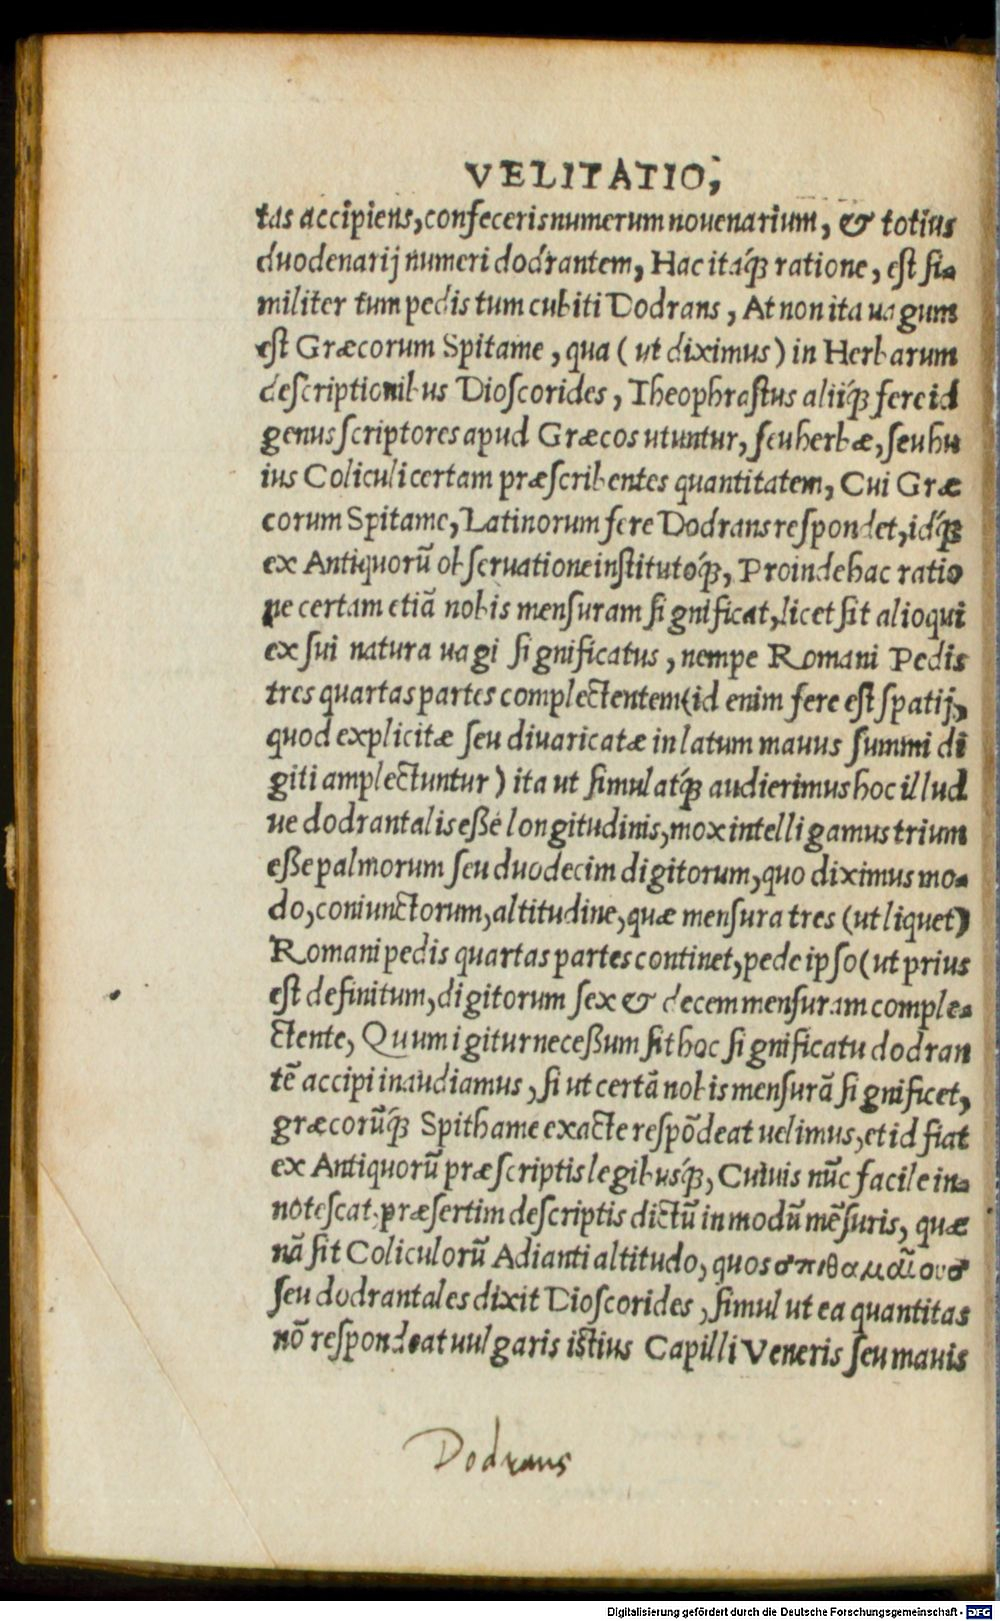 VELITATIO,
tas accipiens, confeceris numerum novenarium, & totius
duodenarij numeri dodrantem, Hac itaq́ꝫ ratione, est si-
militer tum pedis tum cubiti Dodrans, At non ita uagum
est Græcorum Spitame, qua (ut diximus) in Herbarum
descriptionibus Dioscorides, Theophrastus aliiq́ꝫ fere id
genus scriptores apud Græcos utuntur, seu herbæ, seu hu
ius Coliculi certam præscribentes quantitatem, Cui Græ
corum Spitame, Latinorum fere Dodrans respondet, idq́ꝫ
ex Antiquorũ obseruatione institutoq́ꝫ, Proinde hac ratio
ne certam etiã nobis mensuram significat, licet sit alioqui
ex sui natura uagi significatus, nempe Romani Pedis
tres quartas partes complectentem (id enim fere est spatij,
quod explicitæ seu diuaricatæ in latum mauus summi di
giti amplectuntur) ita ut simulatq́ꝫ audierimus hoc illud
ue dodrantalis eßé longitudinis, mox intelligamus trium
eße palmorum seu duodecim digitorum, quo diximus mo-
do, coniunctorum, altitudine, quæ mensura tres (ut liquet)
Romani pedis quartas partes continet, pede ipso (ut prius
est definitum, digitorum sex & decem mensuram comple-
ctente, Quum igitur neceßum sit hoc significatu dodran
tẽ accipi inaudiamus, si ut certã nobis mensurã significet,
græcorũq́ꝫ Spithame exacte respõdeat uelimus, et id fiat
ex Antiquorũ præscriptis legibusq́ꝫ, Cuiuis nũc facile in-
notescat, præsertim descriptis dictũ in modũ mẽsuris, quæ
nã sit Coliculorũ Adianti altitudo, quos σπιθαμιαίους
seu dodrantales dixit Dioscorides, simul ut ea quantitas
nõ respondeat uulgaris istius Capilli Veneris seu mauis
Dodrans
Digitalisierung gefördert durch die Deutsche Forschungsgemeinschaft - DFG